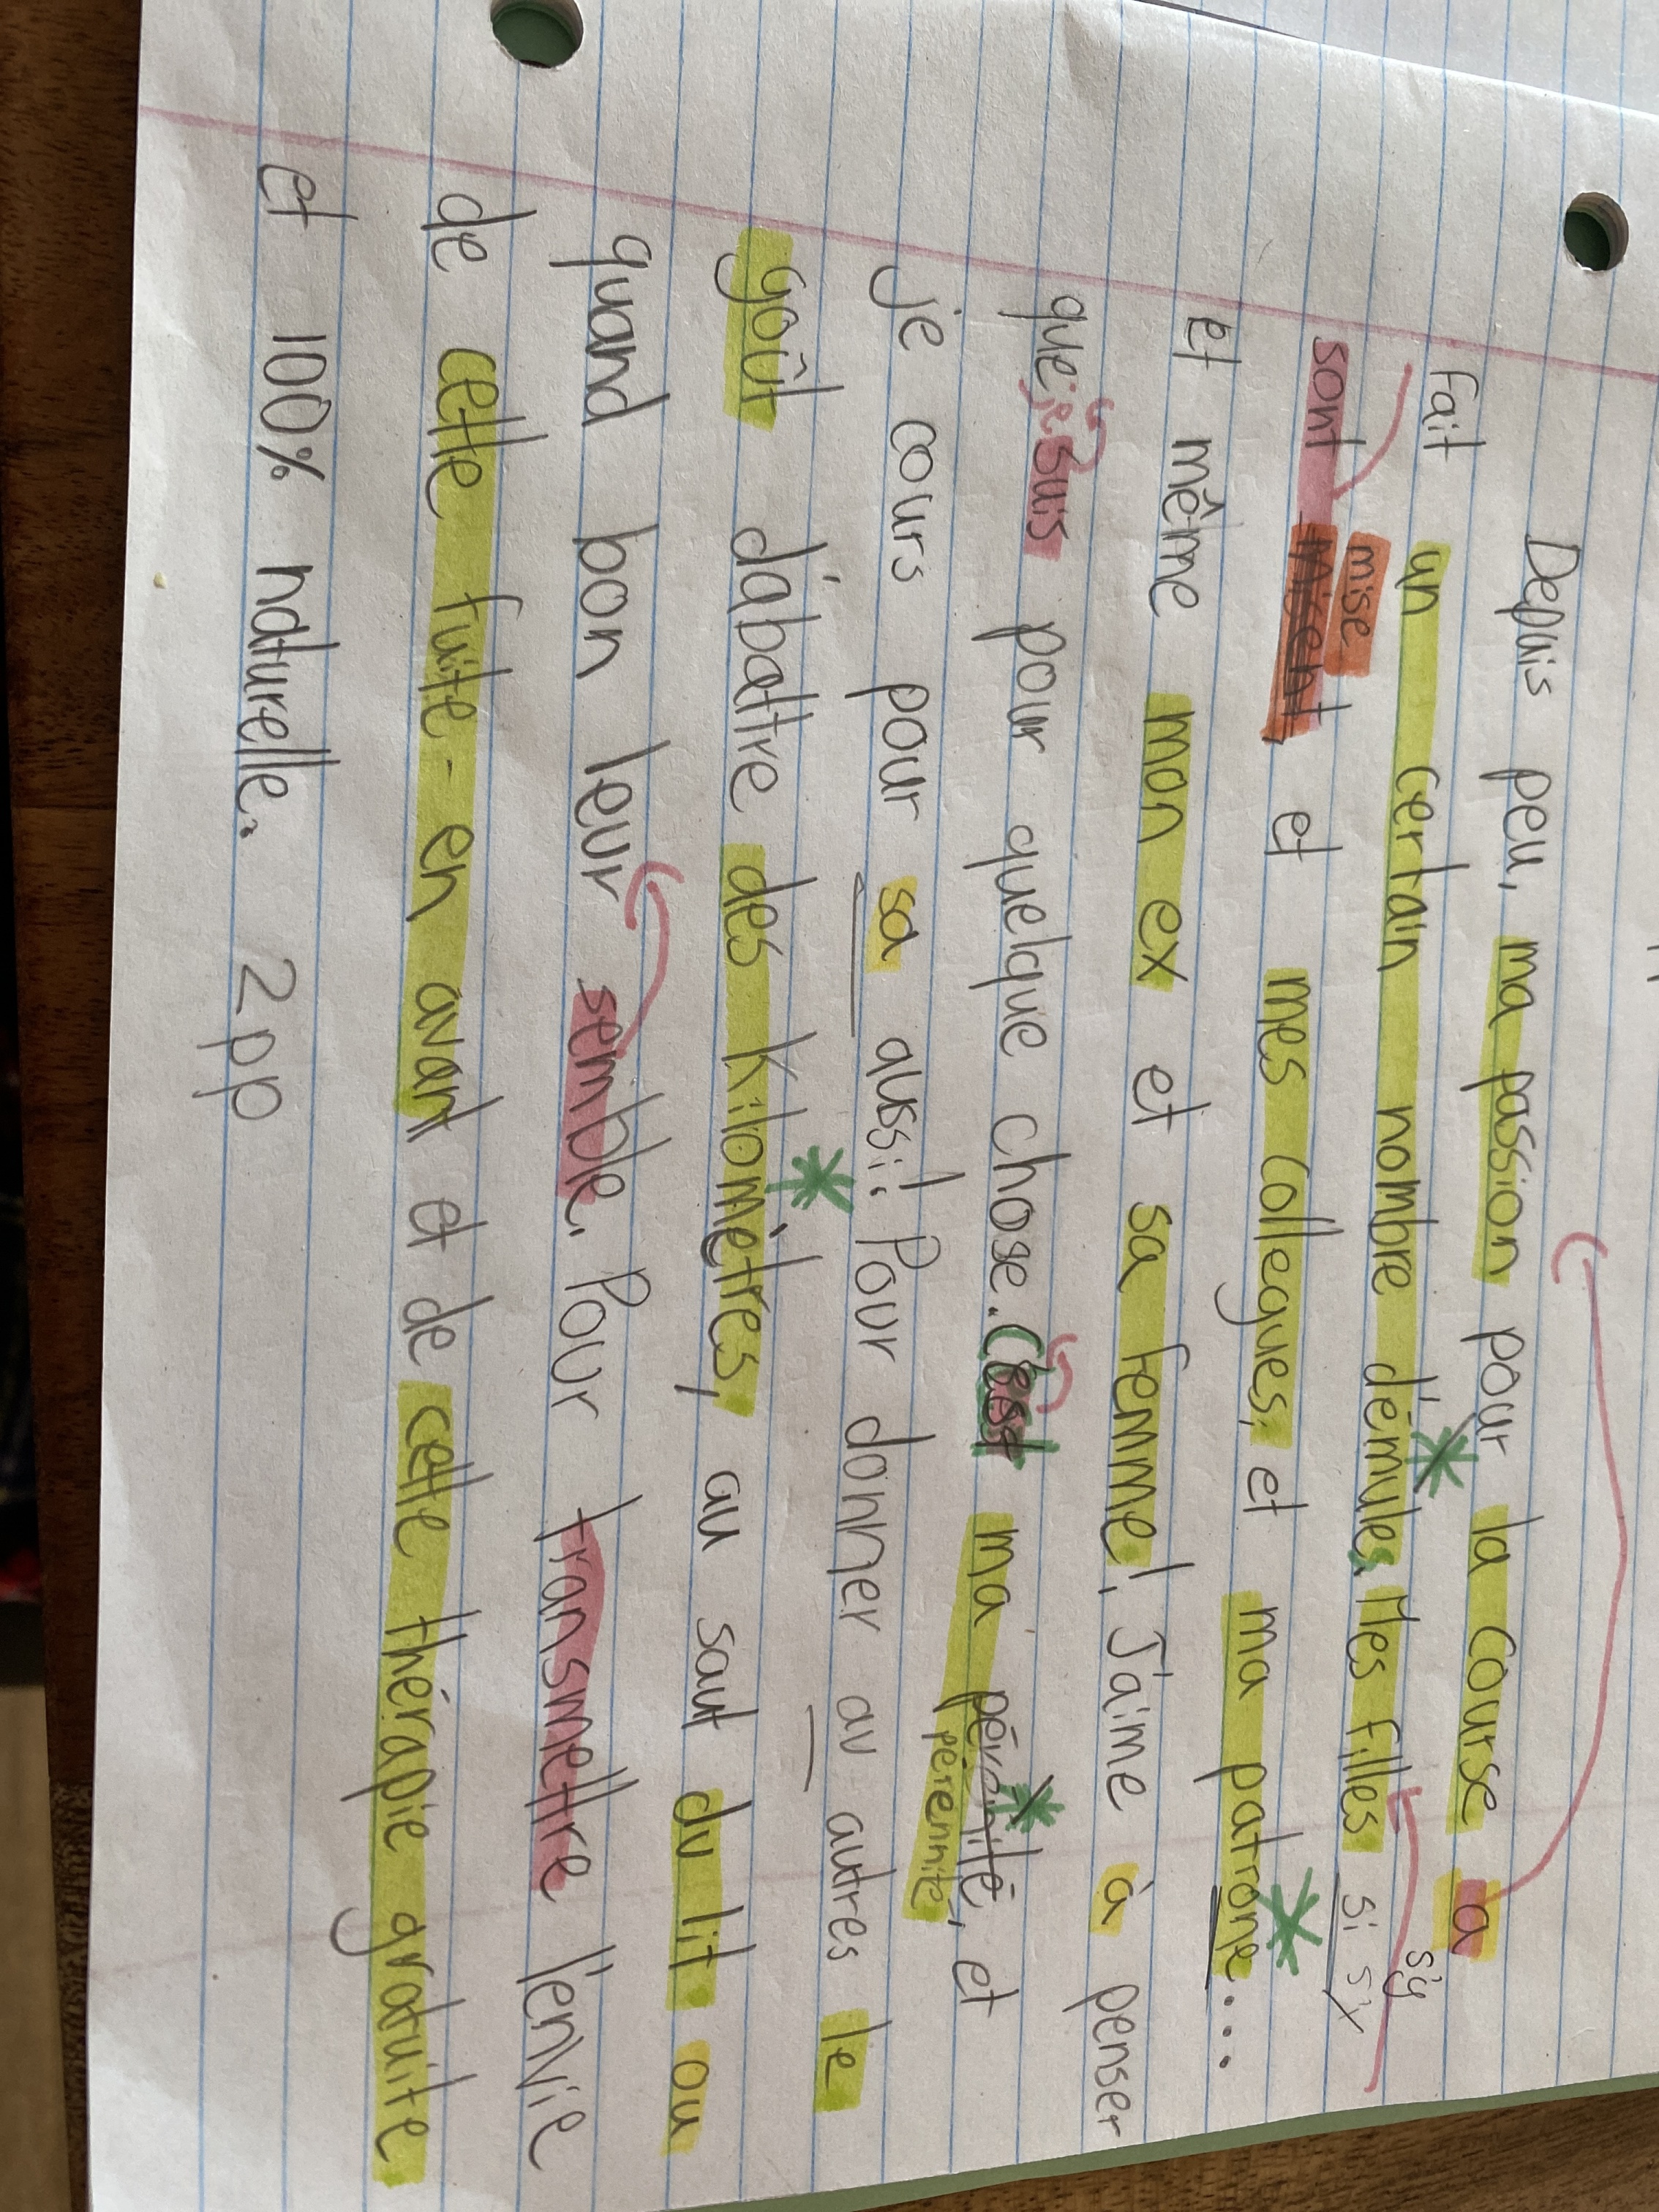 Depuis peu, ma passion pour la course a
fait un certain nombre d'émules. Mes filles si sy
s'y
mise
sont misent, et mes collegues, et ma patrone...
et même mon ex et sa femme!. J'aime à penser
que je suis pour quelque chose. C'est ma pérénité, et
pérennité
je cours pour sa aussi!. Pour donner au autres le
goût d'abattre des kilomètres, au saut du lit ou
quand bon leur semble. Pour transmettre l'envie
de cette fuite-en avant et de cette thérapie gratuite
et 100% naturelle. 2pp